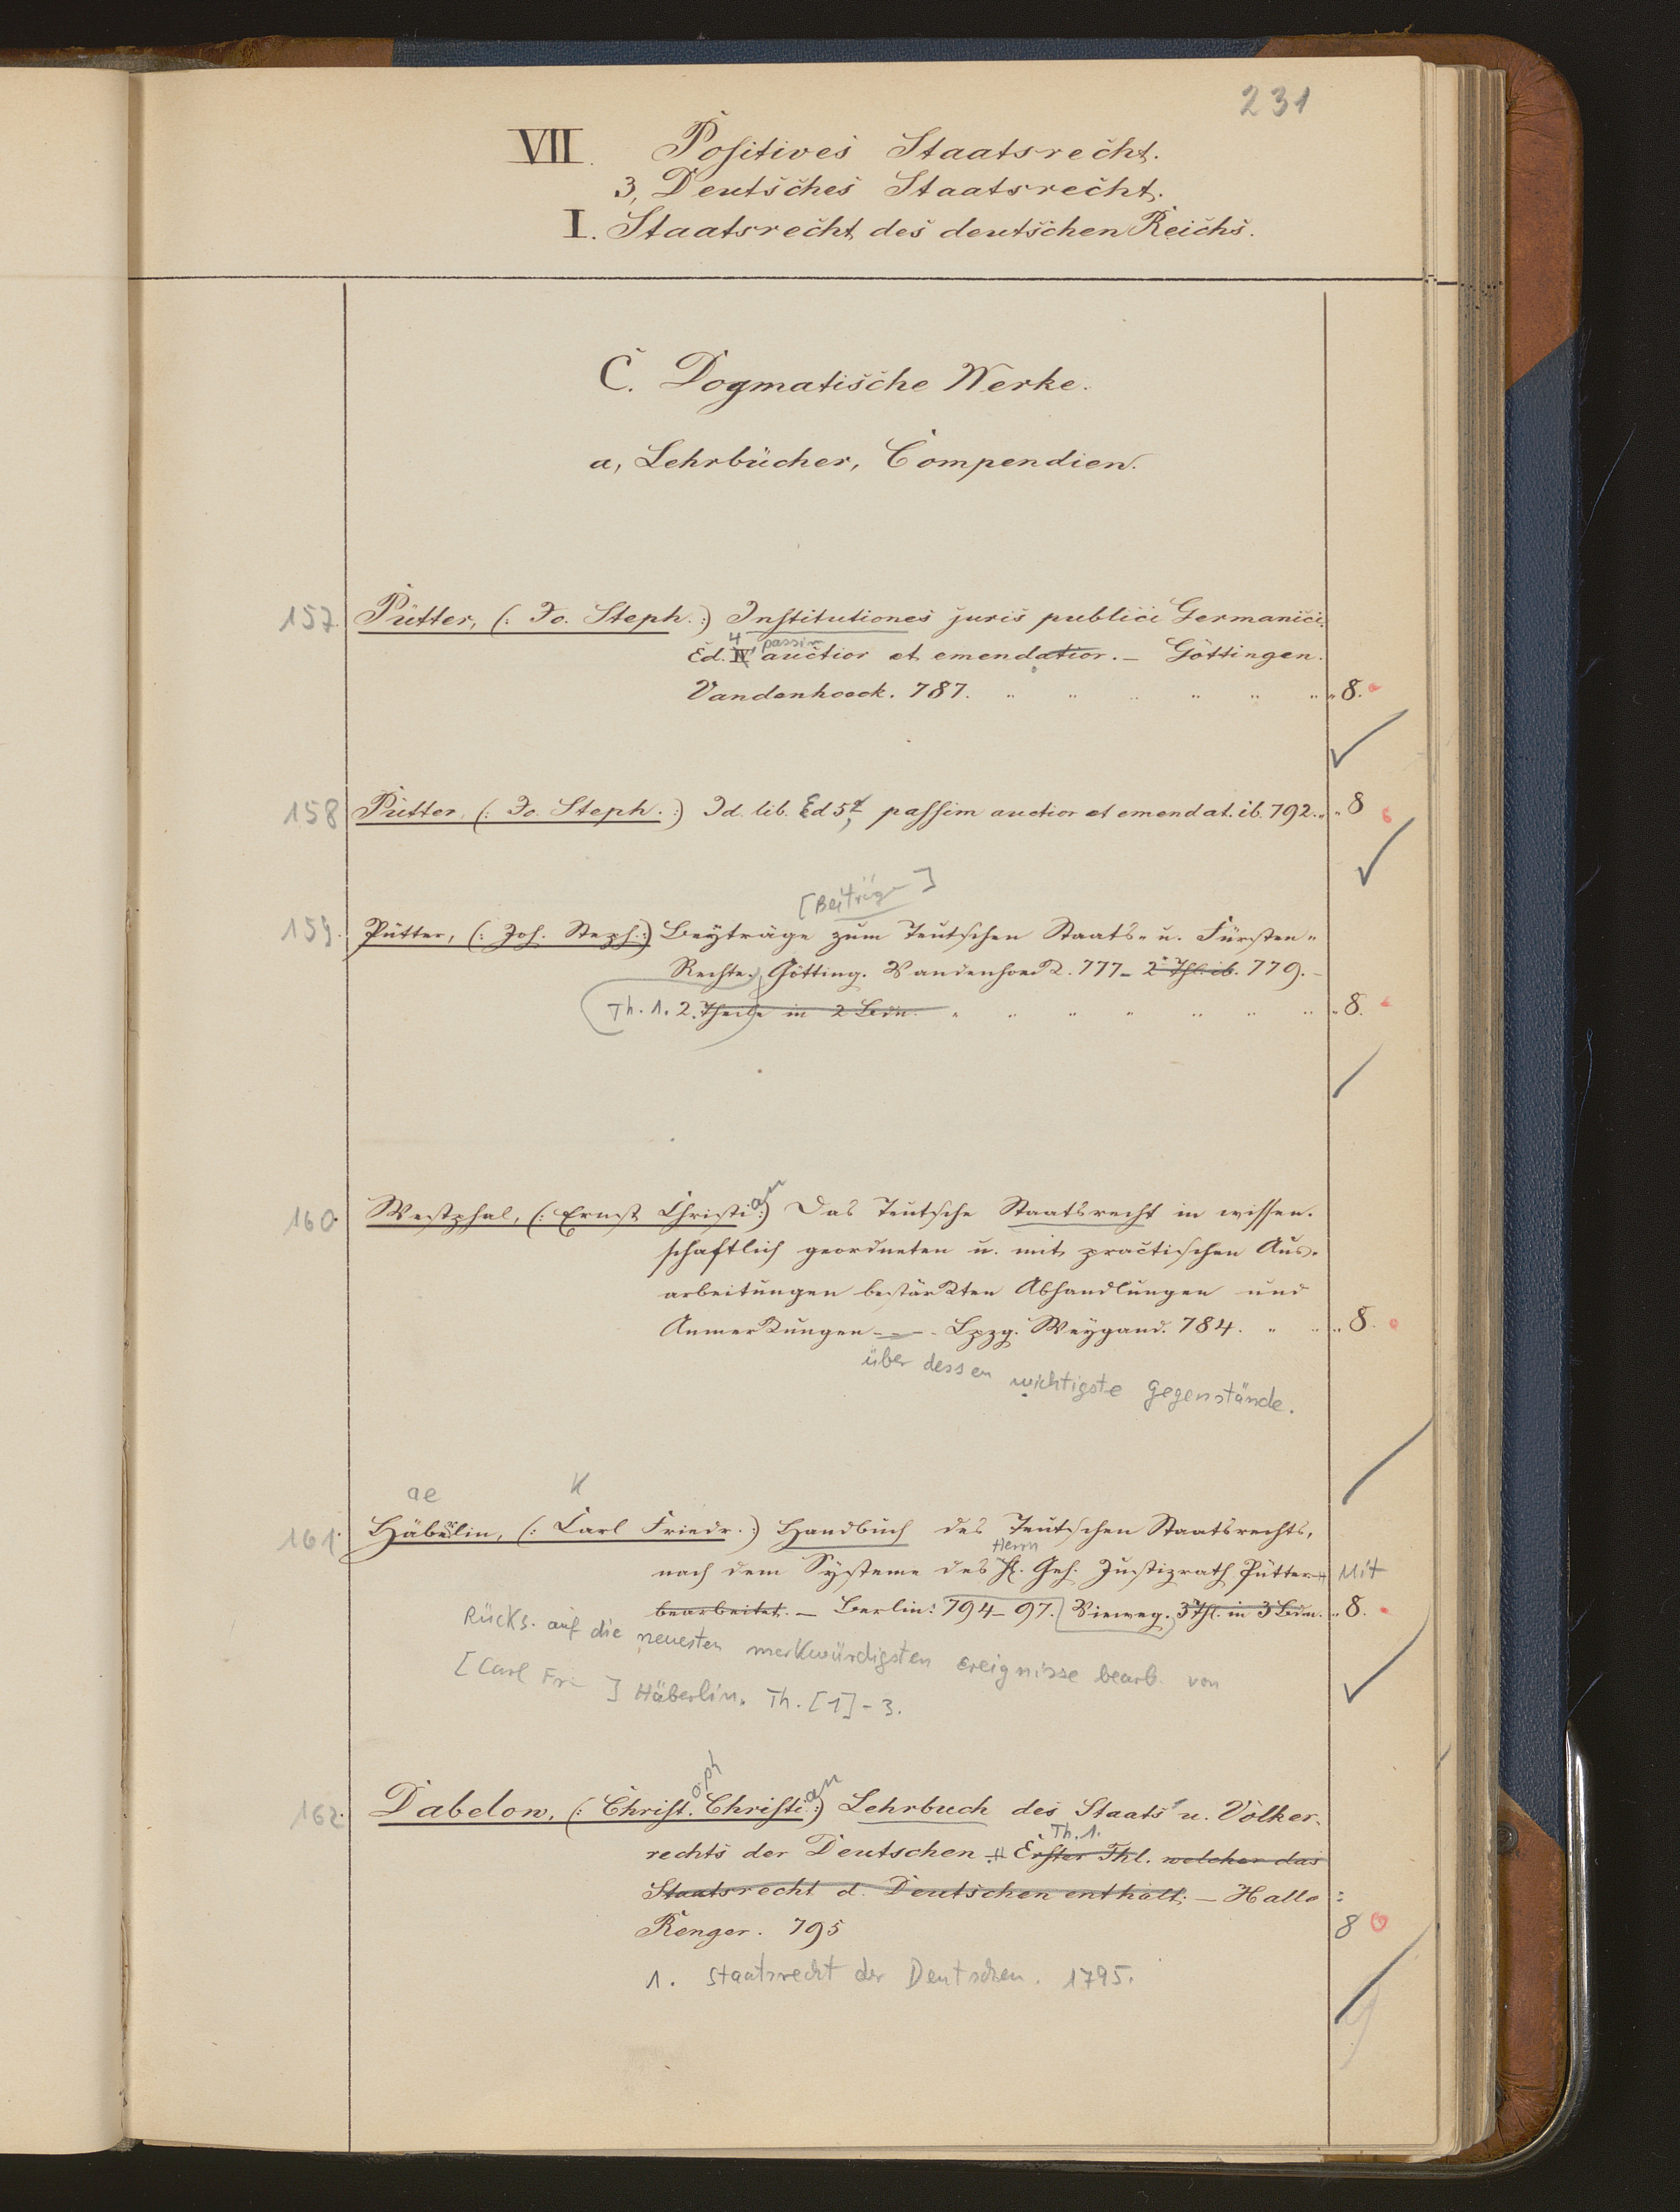 231
VII. Positives Staatsrecht.
3, Deutsches Staatsrecht.
I. Staatsrecht des deutschen Reichs.
C. Dogmatische Werke.
a, Lehrbücher, Compendien.
157. Pütter, (: Jo. Steph. :) Institutiones juris publici Germanici.
4 passim
Ed. IV auctior et emendatior. — Göttingen.
Vandenhoeck. 787. " " " " " " " 8.
158 Pütter, (: Jo. Steph. :) Id. lib. Ed 5, passim auctior et emendat. ib. 792. " " 8
[Beiträge]
159. Pütter, (: Joh. Steph. :) Beyträge zum Teutschen Staats- u. Fürsten-
Rechte. Götting. Vandenhoeck. 777 — 2r Thl. ib. 779. —
Th. 1. 2. Theile in 2 Bdn. " " " " " " " 8.
160. Westphal, (: Ernst Christian :) Das Teutsche Staatsrecht in wissen-
schaftlich geordneten u. mit practischen Aus-
arbeitungen bestärkten Abhandlungen und
Anmerkungen - - - Lpzg. Weygand. 784. " " " 8.
über dessen wichtigste Gegenstände.
ae K
161. Häberlin, (: Carl Friedr. :) Handbuch des Teutschen Staatsrechts,
Herrn
nach dem Systeme des H. Geh. Justizrath Pütter Mit
bearbeitet. — Berlin: 794–97. Vieweg. 3 Thl. in 3 Bdn. " 8.
Rücks. auf die neuesten merkwürdigsten Ereignisse bearb. von
[Carl Fr- ] Häberlin. Th. [1] - 3.
162. Dabelow, (: Christoph. Christian :) Lehrbuch des Staats u. Völker-
Th. 1.
rechts der Deutschen Erster Thl. welcher das
Staatsrecht d. Deutschen enthält: — Halle :
Renger. 795 8
1. Staatsrecht der Deutschen. 1795.